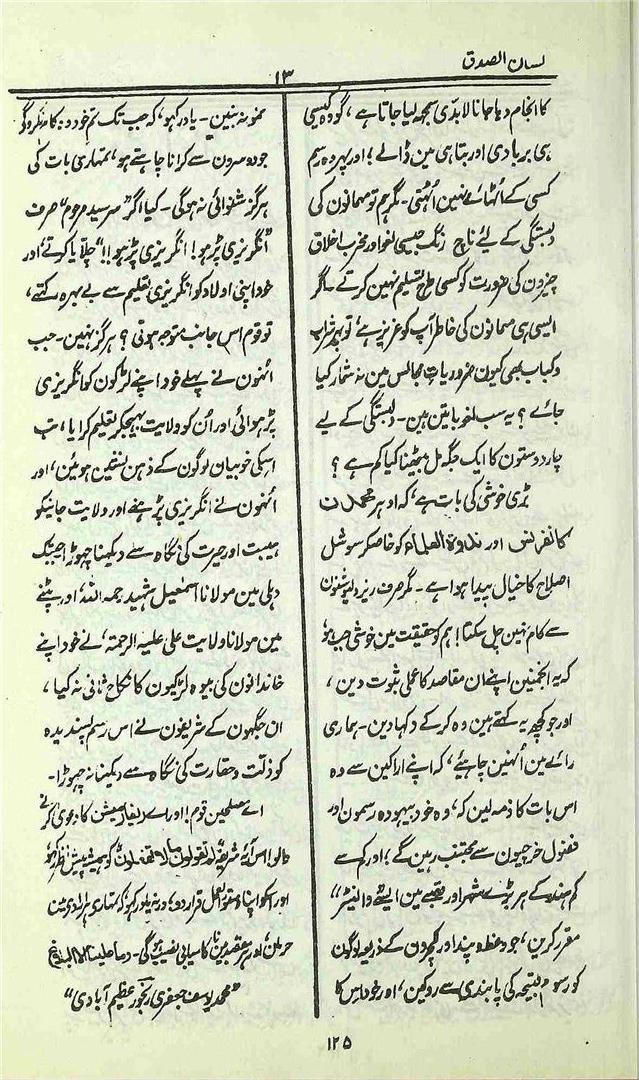 لسان الصدق
۱۳
کا انجام دیا جانا لابدّی سمجھ لیا جاتا ہے، گو وہ کیسی
ہی بربادی اور تباہی مین ڈالے؛ اور پہر وہ رسم
کسی کے اُٹھائے نہین اُٹھتی۔ مگر ہم تو مہمانون کی
دلبستگی کے لیئے ناچ رنگ جیسی لغو اور مخرب اخلاق
چیزون کی ضرورت کو کسی طرح تسلیم نہین کرتے۔ اگر
ایسی ہی مہمانون کی خاطر آپ کو عزیز ہے، تو پہر شراب
و کباب بھی کیون ضروریاتِ مجالس مین نہ شمار کیا
جائے؟ یہ سب لغو باتین ہین۔ دلبستگی کے لیے
چار دوستون کا ایک جگہ مل بیٹھنا کیا کم ہے؟
بڑی خوشی کی بات ہے، کہ اودہر محمدن
کانفرنس اور ندوۃ العلماء کو خاصکر سوشل
اصلاح کا خیال پیدا ہوا ہے۔ مگر صرف رزولیوشنون
سے کام نہین چل سکتا! ہم کو حقیقت مین خوشی جب ہو،
کہ یہ انجمنین اپنے ان مقاصد کا عملی ثبوت دین،
اور جو کچھ یہ کہتے ہین وہ کر کے دکہا دین۔ ہماری
رائے مین اُنہین چاہیئے، کہ اپنے اراکین سے وہ
اس بات کا ذمہ لین کہ، وہ خود بیہودہ رسمون اور
فضول خرچیون سے مجتنب رہین گے؛ اور کم سے
کم ہند کے ہر بڑے شہر اور قصبے مین ایسے "والنٹیر"
مقرر کرین، جو وعظ و پند اور لکچرون کے ذریعہ لوگون
کو رسوم قبیحہ کی پابندی سے روکین، اور خود اس کا
نمونہ بنین۔ یاد رکہو، کہ جب تک تم خود وہ کام نکروگے
جو دوسرون سے کرانا چاہتے ہو، تمہاری بات کی
ہرگز شنوائی نہ ہوگی۔ کیا اگر "سرسید مرحوم" صرف
"انگریزی پڑہو! انگریزی پڑہو!!" چلّایا کرتے، اور
خود اپنی اولاد کو انگریزی تعلیم سے بے بہرہ رکہتے،
تو قوم اس جانب متوجہ ہوتی؟ ہرگز نہین۔ جب
اُنہون نے پہلے خود اپنے لڑکون کو انگریزی
پڑہوائی اور اُن کو ولایت بہیجکر تعلیم کرایا، تب
اسکی خوبیان لوگون کے ذہن نشین ہوئین، اور
اُنہون نے انگریزی پڑہنے اور ولایت جانیکو
ہیبت اور حیرت کی نگاہ سے دیکھنا چہوڑا۔ جبتک
دہلی مین مولانا اسمٰعیل شہید رحمہ اللہ، اور پٹنے
مین مولانا ولایت علی علیہ الرحمۃ، نے خود اپنے
خاندانون کی بیوہ لڑکیون کا نکاح ثانی نہ کیا،
ان جگہون کے شریفون نے اس رسم پسندیدہ
کو ذلّت و حقارت کی نگاہ سے دیکہنا نہ چہوڑا۔
اے مصلحین قوم! اور اے ریفارمیشن کا دعویٰ کرنے
والو! اس آئے شریفہ لم تقولون مالا تفعلون کو ہمیشہ پیش نظر رکہو،
اور اسکو اپنا دستورالعمل قرار دو؛ ورنہ یاد رکہو کہ، تمہاری ہر ارادی مین
حرمان، اور ہر مقصد مین ناکامیابی نصیب ہوگی۔ وما علینا الا البلاغ
"محمد یوسف جعفری رنجور عظیم آبادی"
۱۲۵